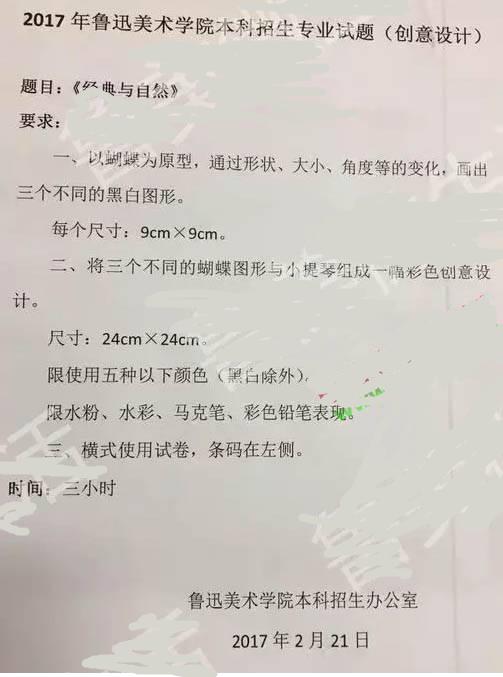 2017 年鲁迅美术学院本科招生专业试题（创意设计）
题目：《经典与自然》
要求：
一、以蝴蝶为原型，通过形状、大小、角度等的变化，画出
三个不同的黑白图形。
每个尺寸：9cm×9cm。
二、将三个不同的蝴蝶图形与小提琴组成一幅彩色创意设
计。
尺寸：24cm×24cm。
限使用五种以下颜色（黑白除外）
限水粉、水彩、马克笔、彩色铅笔表现。
三、横式使用试卷，条码在左侧。
时间：三小时
鲁迅美术学院本科招生办公室
2017 年 2 月 21 日